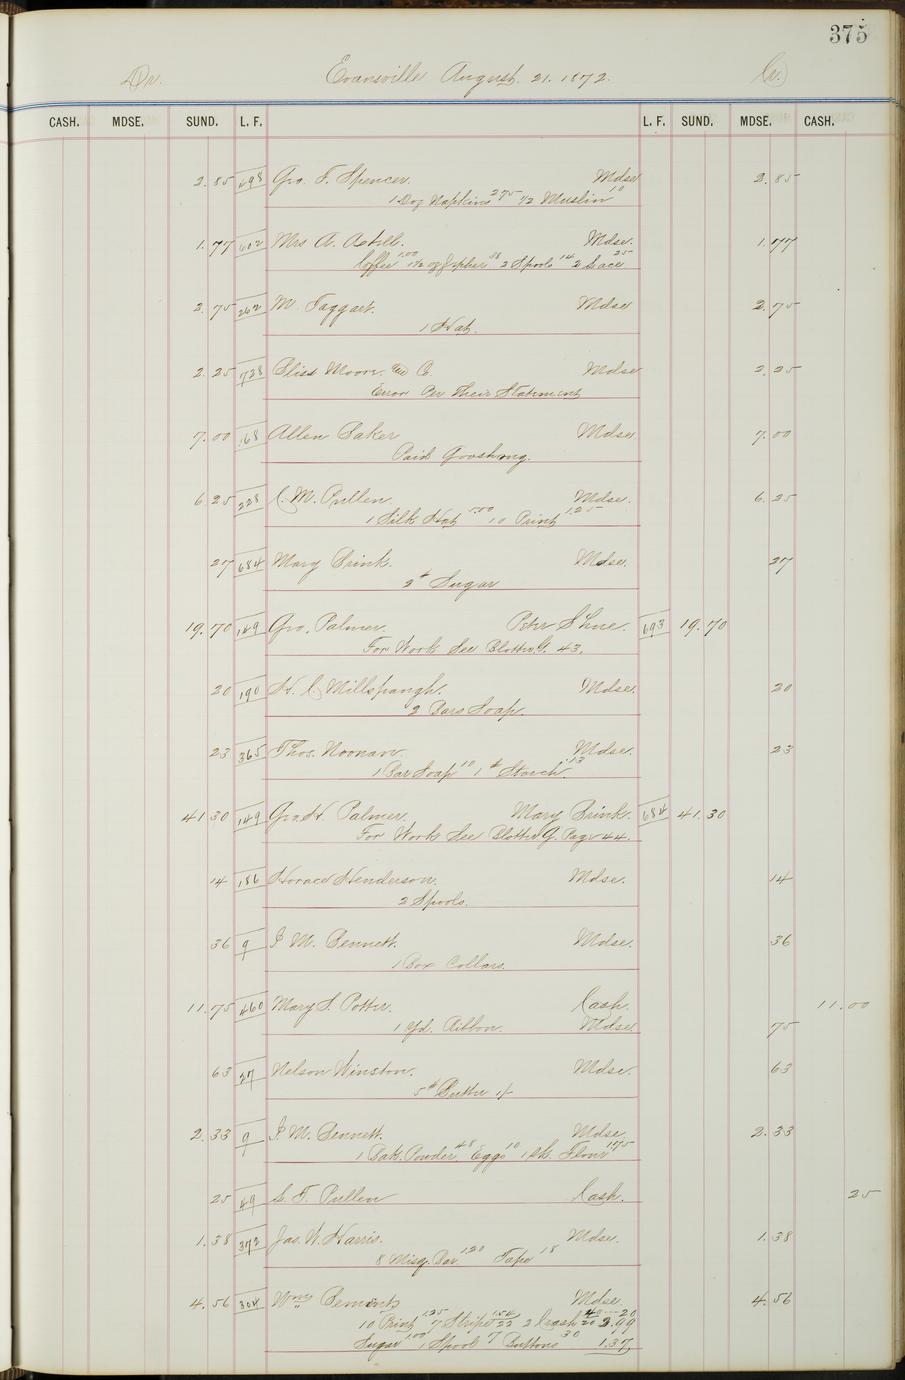 375
Dr. Evansville August. 21. 1872. Cr.
CASH. MDSE. SUND. L. F. L. F. SUND. MDSE. CASH.
2.85 498 Geo. F. Spencer. Mdse 2.85
1 Doz Napkins 275 1/2 Muslin 10
1.77 602 Mrs A. Mdse. 1.77
Coffee 1.00 1 1/2 oz Zephyr 38 2 Spools 14 2 Lace 25
2.75 262 M. Taggart. Mdse 2.75
1 Hat.
2.25 728 Bliss Moore & Co. Mdse 2.25
Error Per Their Statement
7.00 168 Allen Baker Mdse 7.00
Paid
6 25 228 C. M. Pullen. Mdse. 6.25
1 Silk Hat 5.00 10 Print 1.25
27 684 Mary Brink. Mdse. 27
2# Sugar
19.70 149 Geo. Palmer. Peter Shue. 693 19.70
For Work See Blotter G. 43.
20 190 H. C. Millspaugh. Mdse. 20
2 Bars Soap.
23 365 Thos. Noonan. Mdse. 23
1 Bar Soap 10 1# Starch. 13
41 30 149 Geo. H. Palmer. Mary Brink. 684 41.30
For Work See Blotter G. Page 44.
14 186 Horace Henderson. Mdse. 14
2 Spools.
36 9 I. M. Bennett. Mdse. 36
1 Box Collars.
11.75 460 Mary S. Potter. Cash. 11.00
1 yd. Ribbon. Mdse 75
63 27 Nelson Winston. Mdse. 63
5# Butter
2.33 9 I. M. Bennett. Mdse. 2.33
1 Bak. Powder 48 Eggs 10 1 sk. Flour 1.75
25 49 S. F. Pullen Cash. 25
1.38 372 Jas. W. Harris. Mdse. 1.38
8 Misq. Bar 1.20 Tape 18
4.56 304 Wm Bemonts Mdse. 4.56
10 Print 1.25 7 Stripe 1.54 22 2 Crash 40 20 2.99
Sugar 1.00 1 Spool 7 Buttons 30 1.37